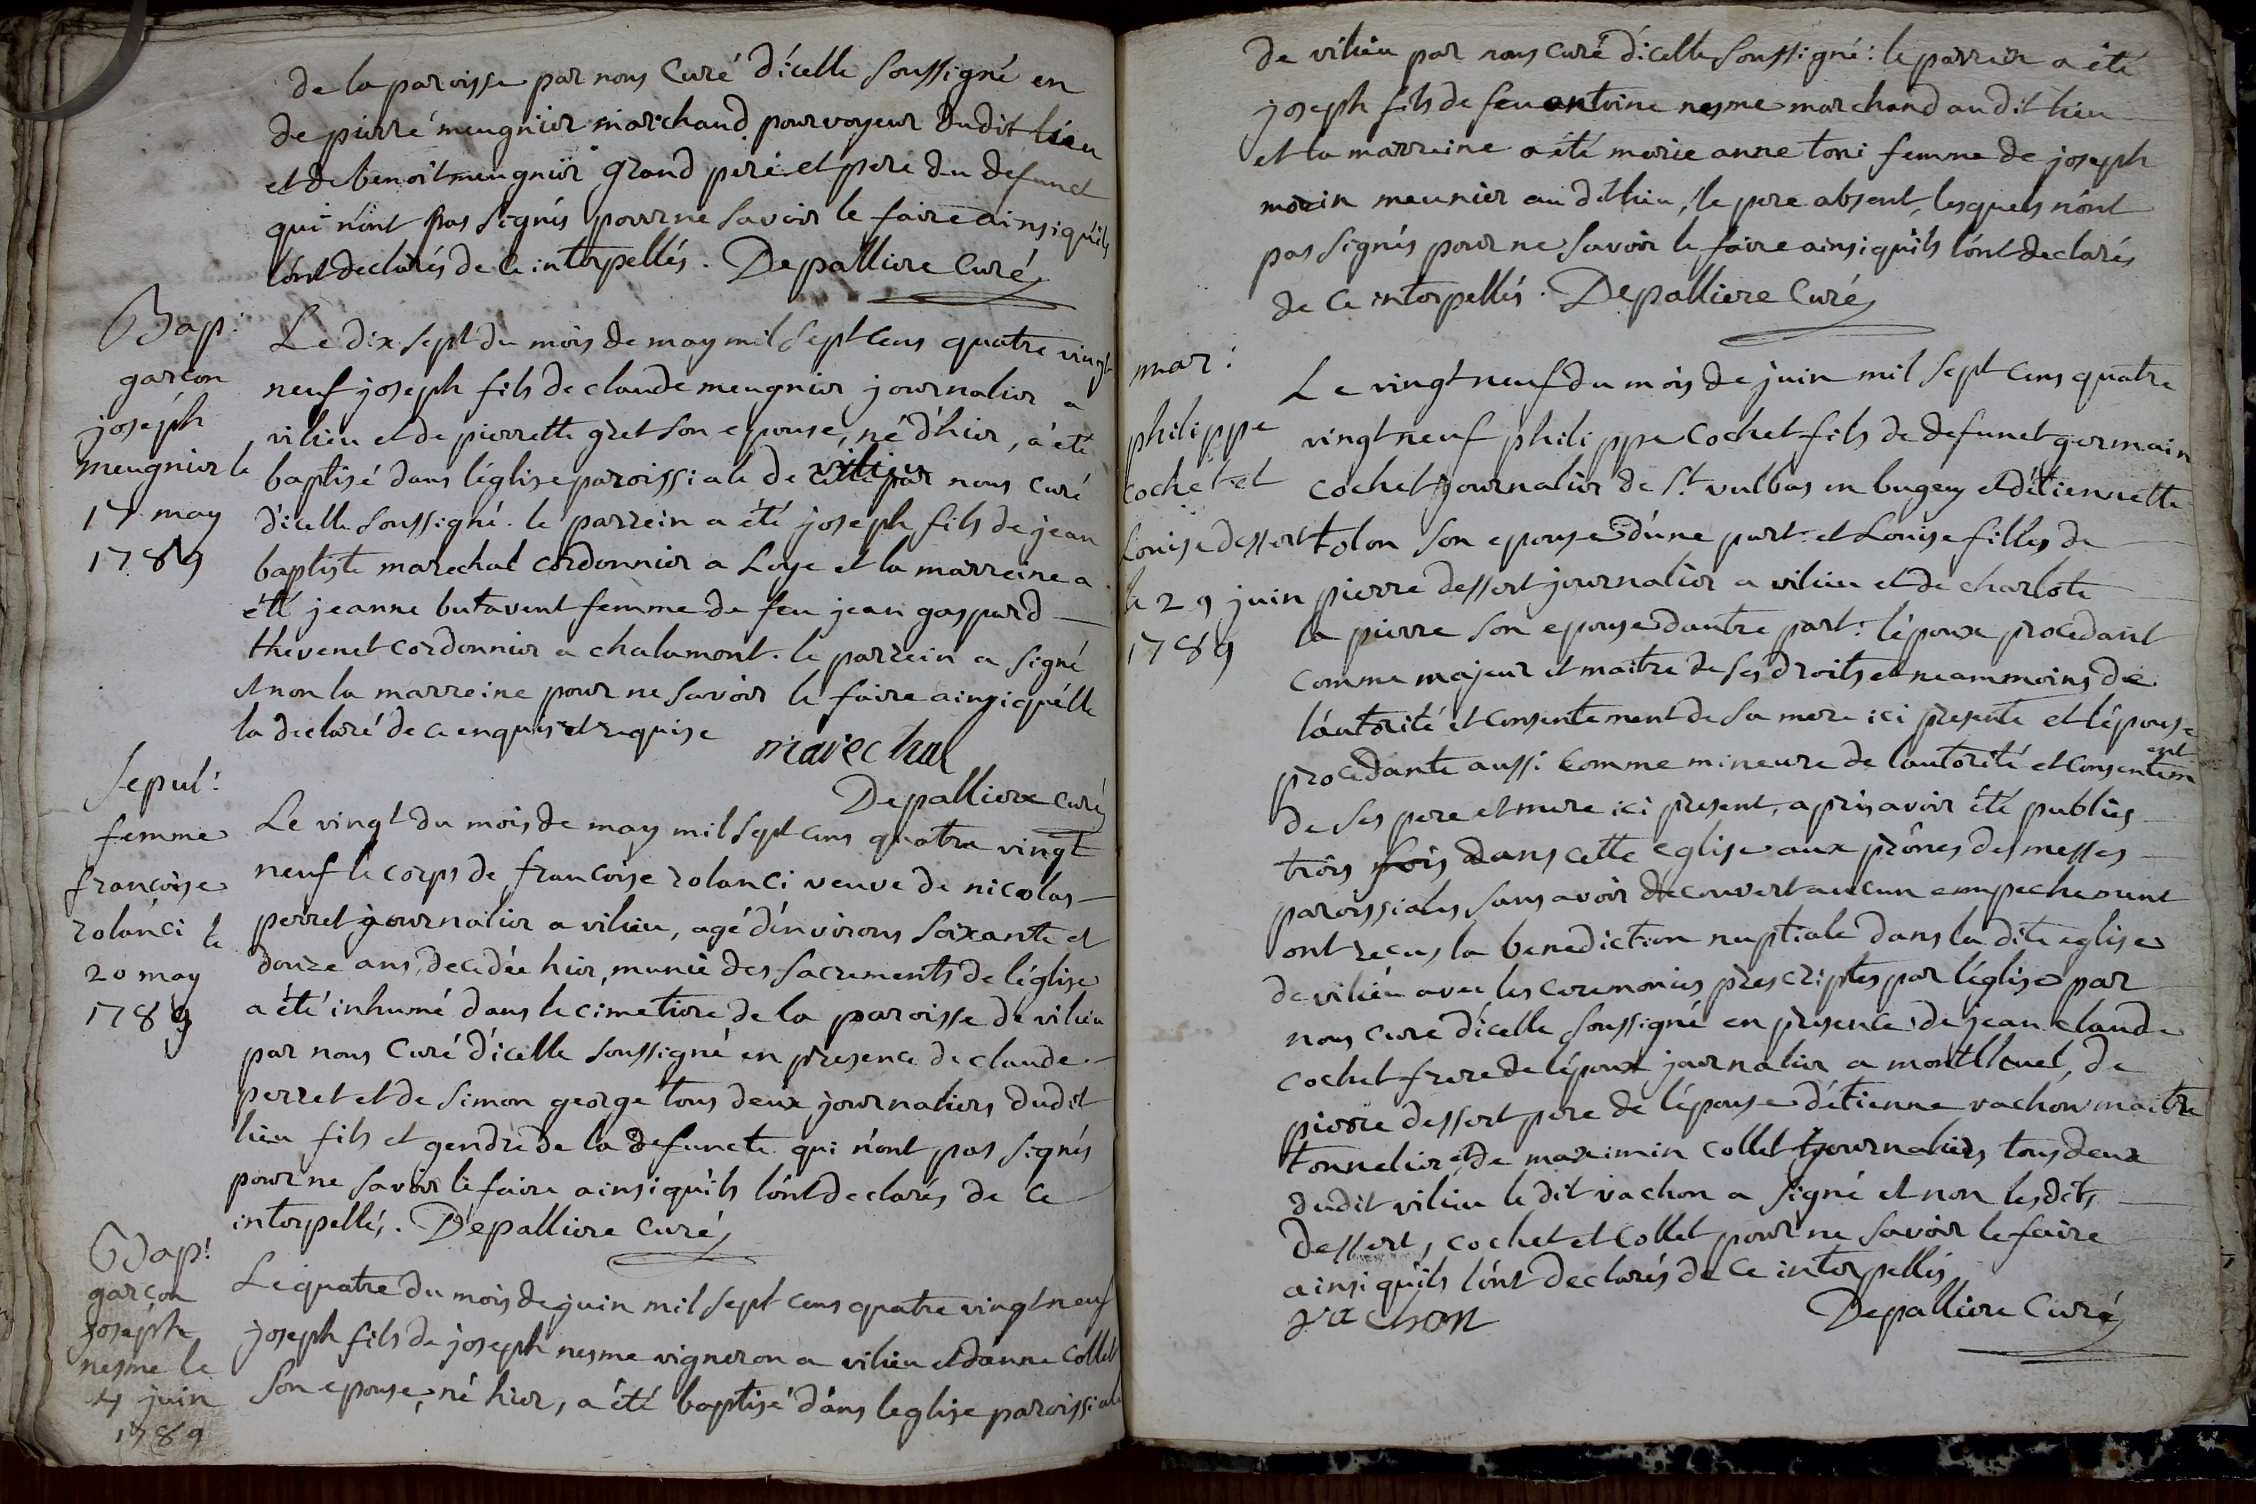 de la paroisse par nous Curé d'icelle soussigné en
de pierre meugnier marchand pourvoyeur dudit lieu
et de benoit meugnier grand pere et pere du defunct
qui n'ont pas signés pour ne savoir le faire ainsi qu'ils
l'ont declarés de ce interpellés. Depalliere Curé
Bap:
garcon
joseph
meugnier le
17 may
1789
Le dix sept du mois de may mil sept cens quatre vingt
neuf joseph fils de claude meugnier journalier a
vilieu et de pierrette gret son epouse, né d'hier, a été
baptisé dans l'église paroissiale de vilieu par nous curé
d'icelle soussigné. le parrein a été joseph fils de jean
baptiste marechal cordonnier a Loye et la marreine a
été jeanne butavent femme de feu jean gaspard
thevenet cordonnier a chalamont. le parrein a signé
et non la marreine pour ne savoir le faire ainsi qu'elle
la declaré de ce enquis et requise
marechal
Depalliere curé
Sepul:
femme
francoise
rolanci le
20 may
1789
Le vingt du mois de may mil sept cens quatre vingt
neuf le corps de francoise rolanci veuve de nicolas
perret journalier a vilieu, agé d'environs soixante et
douze ans, decedée hier, munie des sacrements de l'église
a été inhumé dans le cimetiere de la paroisse de vilieu
par nous Curé d'icelle soussigné en presence de claude
perret et de simon george tous deux journaliers dudit
lieu fils et gendre de la defuncte qui n'ont pas signés
pour ne savoir le faire ainsi qu'ils l'ont declarés de ce
interpellés. Depalliere curé
Bap:
garcon
joseph
nesme le
4 juin
1789
Le quatre du mois de juin mil sept cens quatre vingt neuf
joseph fils de joseph nesme vigneron a vilieu et d'anne collet
son epouse, né hier, a été baptisé dans leglise paroissiale
de vilieu par nous curé d'icelle soussigné: le parrein a été
joseph fils de feu antoine nesme marchand audit lieu
et la marreine a été marie anne toni femme de joseph
morin meunier au dit lieu, le pere absent, lesquels n'ont
pas signés pour ne savoir le faire ainsi qu'ils l'ont declarés
de ce interpellés. Depalliere Curé
mar:
philippe
cochet et
louise dessert
le 29 juin
1789
Le vingt neuf du mois de juin mil sept cens quatre
vingt neuf philippe Cochet fils de defunct germain
cochet journalier de St vulbas en bugey et d'étiennette
tolon son epouse d'une part. et Louise filles de
pierre dessert journalier a vilieu et de charlote
la pierre son epouse dautre part: l'époux procedant
comme majeur et maitre de ses droits et neammoins de
l'autorité et consentement de sa mere ici presente et l'épouse
procedante aussi comme mineure de l'autorité et consentement
de ses pere et mere ici present, apris avoir été publiés
trois fois dans cette eglise aux prônes des messes
paroissiales sans avoir decouvert aucun empechement
ont recus la benediction nuptiale dans la dite eglise
de vilieu avec les ceremonies prescriptes par l'église par
nous cure d'icelle soussigné en presence de jean claude
cochet frere de l'époux journalier a montlluel, de
pierre dessert pere de l'épouse d'étienne vachon maitre
tonnelier et de maximin collet journaliers tous deux
dudit vilieu le dit vachon a signé et non lesdits
dessert, cochet et collet pour ne savoir le faire
ainsi qu'ils l'ont declarés de ce interpellés
vachon Depalliere Curé